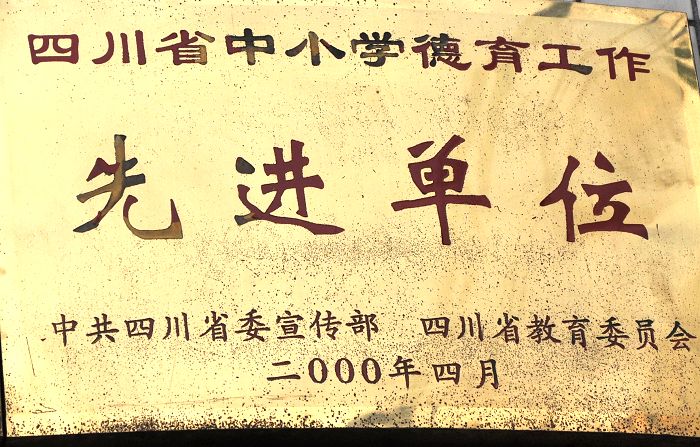 四川省中小学德育工作
先进单位
中共四川省委宣传部 四川省教育委员会
二000年四月